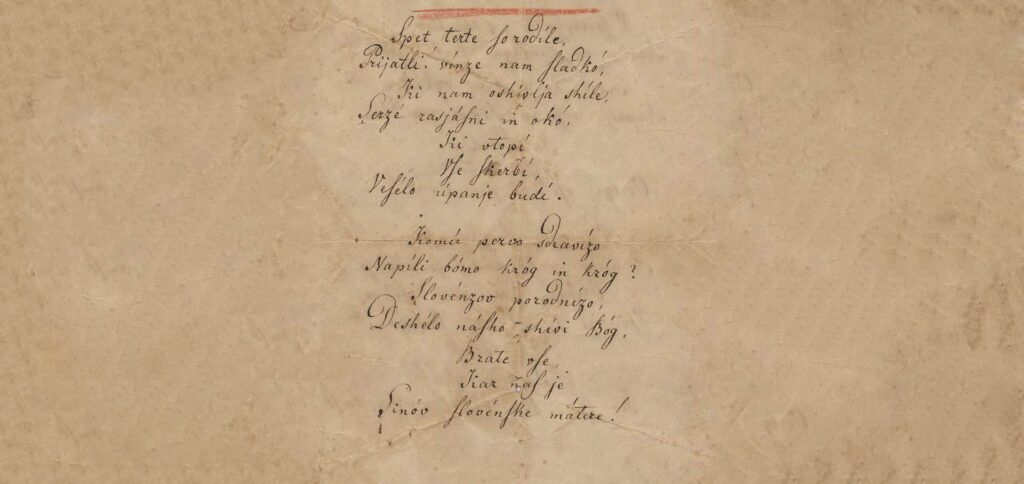 Spet terte ſo rodíle,
Prijatli! vínze nam ſladkó,
Ki nam oshivlja shíle,
Serzé rasjáſni in okó,
Ki vtopí
Vſe ſkerbí,
Veſélo úpanje budí.
Komú pervo sdravízo
Napíli bómo króg in króg?
Slovénzov porodnízo,
Deshélo náſho shívi Bóg,
Brate vſe,
Kar naſ je
Sinóv ſlovénſke mátere!